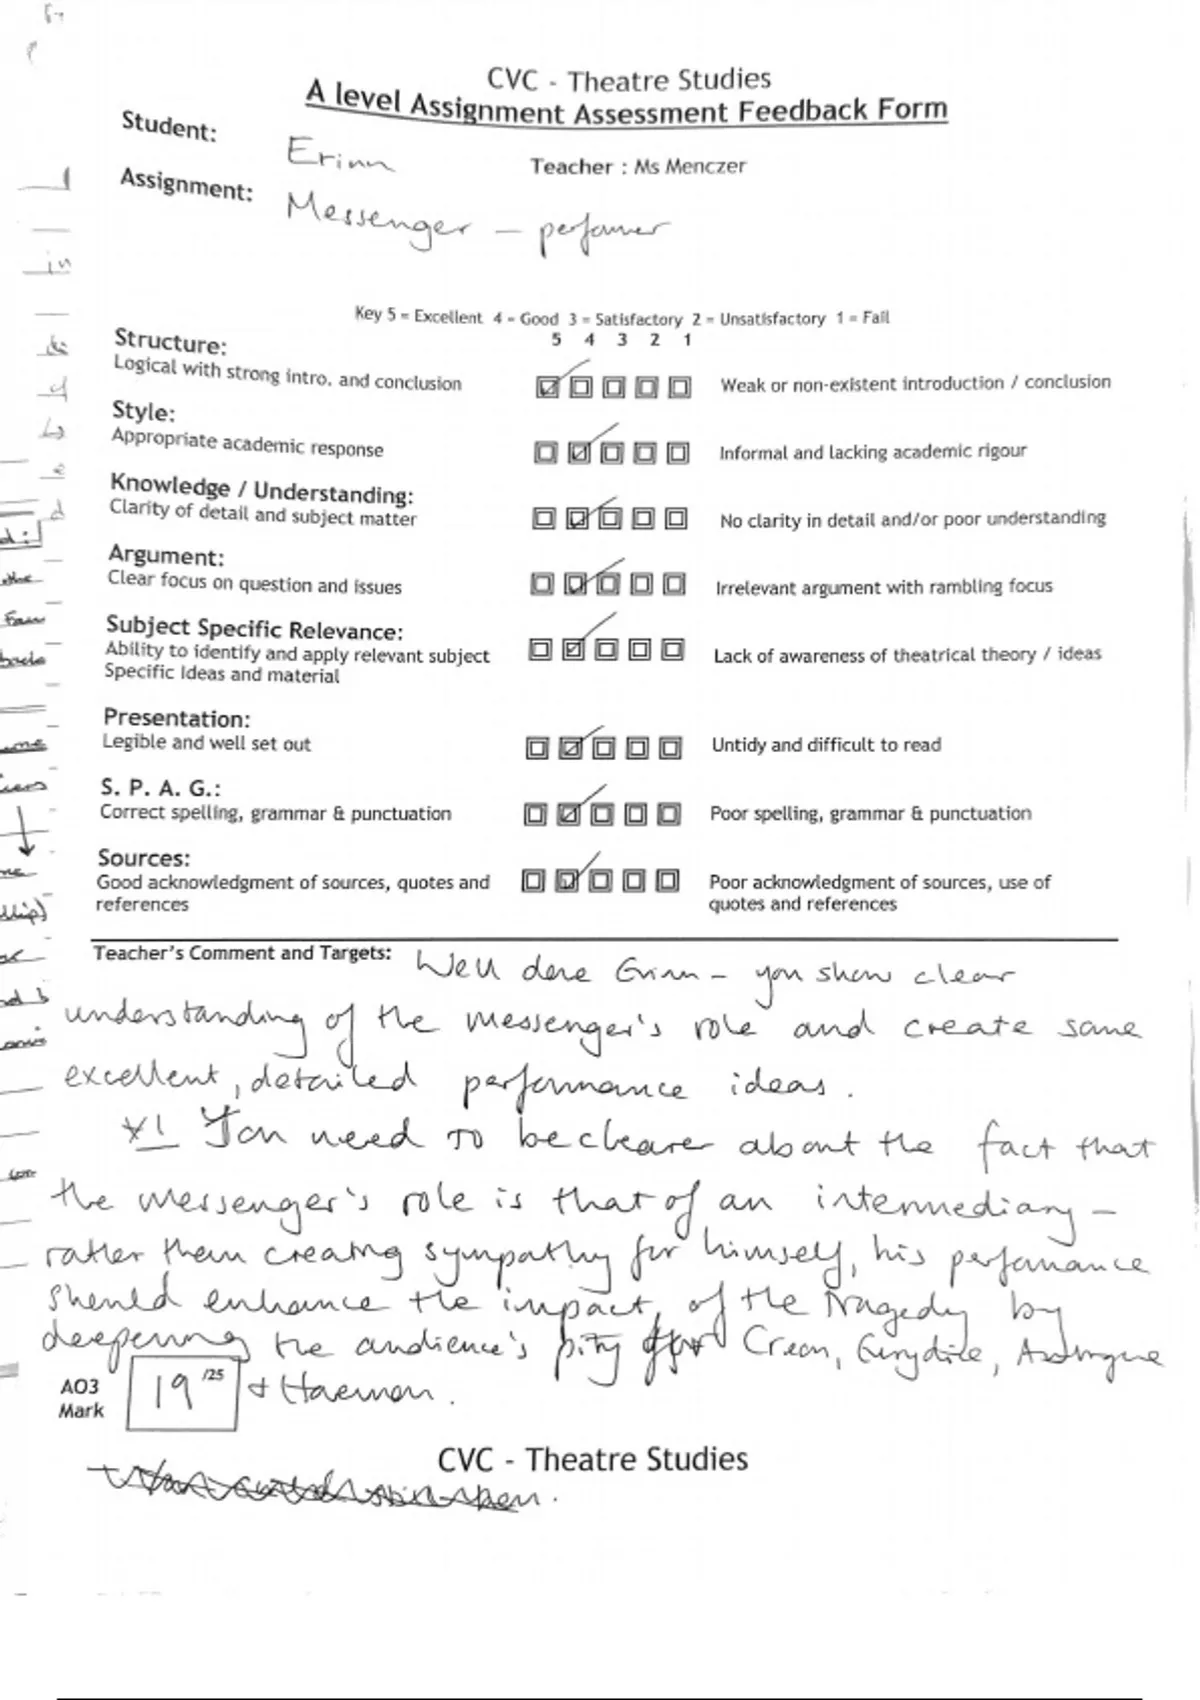 CVC - Theatre Studies
A level Assignment Assessment Feedback Form
Student: Erinn
Teacher : Ms Menczer
Assignment: Messenger – performer
Key 5 = Excellent 4 = Good 3 = Satisfactory 2 = Unsatisfactory 1 = Fail
5 4 3 2 1
Structure:
Logical with strong intro. and conclusion
Weak or non-existent introduction / conclusion
Style:
Appropriate academic response
Informal and lacking academic rigour
Knowledge / Understanding:
Clarity of detail and subject matter
No clarity in detail and/or poor understanding
Argument:
Clear focus on question and issues
Irrelevant argument with rambling focus
Subject Specific Relevance:
Ability to identify and apply relevant subject
Specific Ideas and material
Lack of awareness of theatrical theory / ideas
Presentation:
Legible and well set out
Untidy and difficult to read
S. P. A. G.:
Correct spelling, grammar & punctuation
Poor spelling, grammar & punctuation
Sources:
Good acknowledgment of sources, quotes and
references
Poor acknowledgment of sources, use of
quotes and references
Teacher's Comment and Targets: Well done Erinn – you show clear
understanding of the Messenger's role and create some
excellent, detailed performance ideas.
*1 You need to be clearer about the fact that
the Messenger's role is that of an intermediary –
rather them creating sympathy for himself, his performance
should enhance the impact of the tragedy by
deepening the audience's pity for Creon, Eurydice, Antigone
& Haemon.
AO3
Mark
19 /25
CVC - Theatre Studies